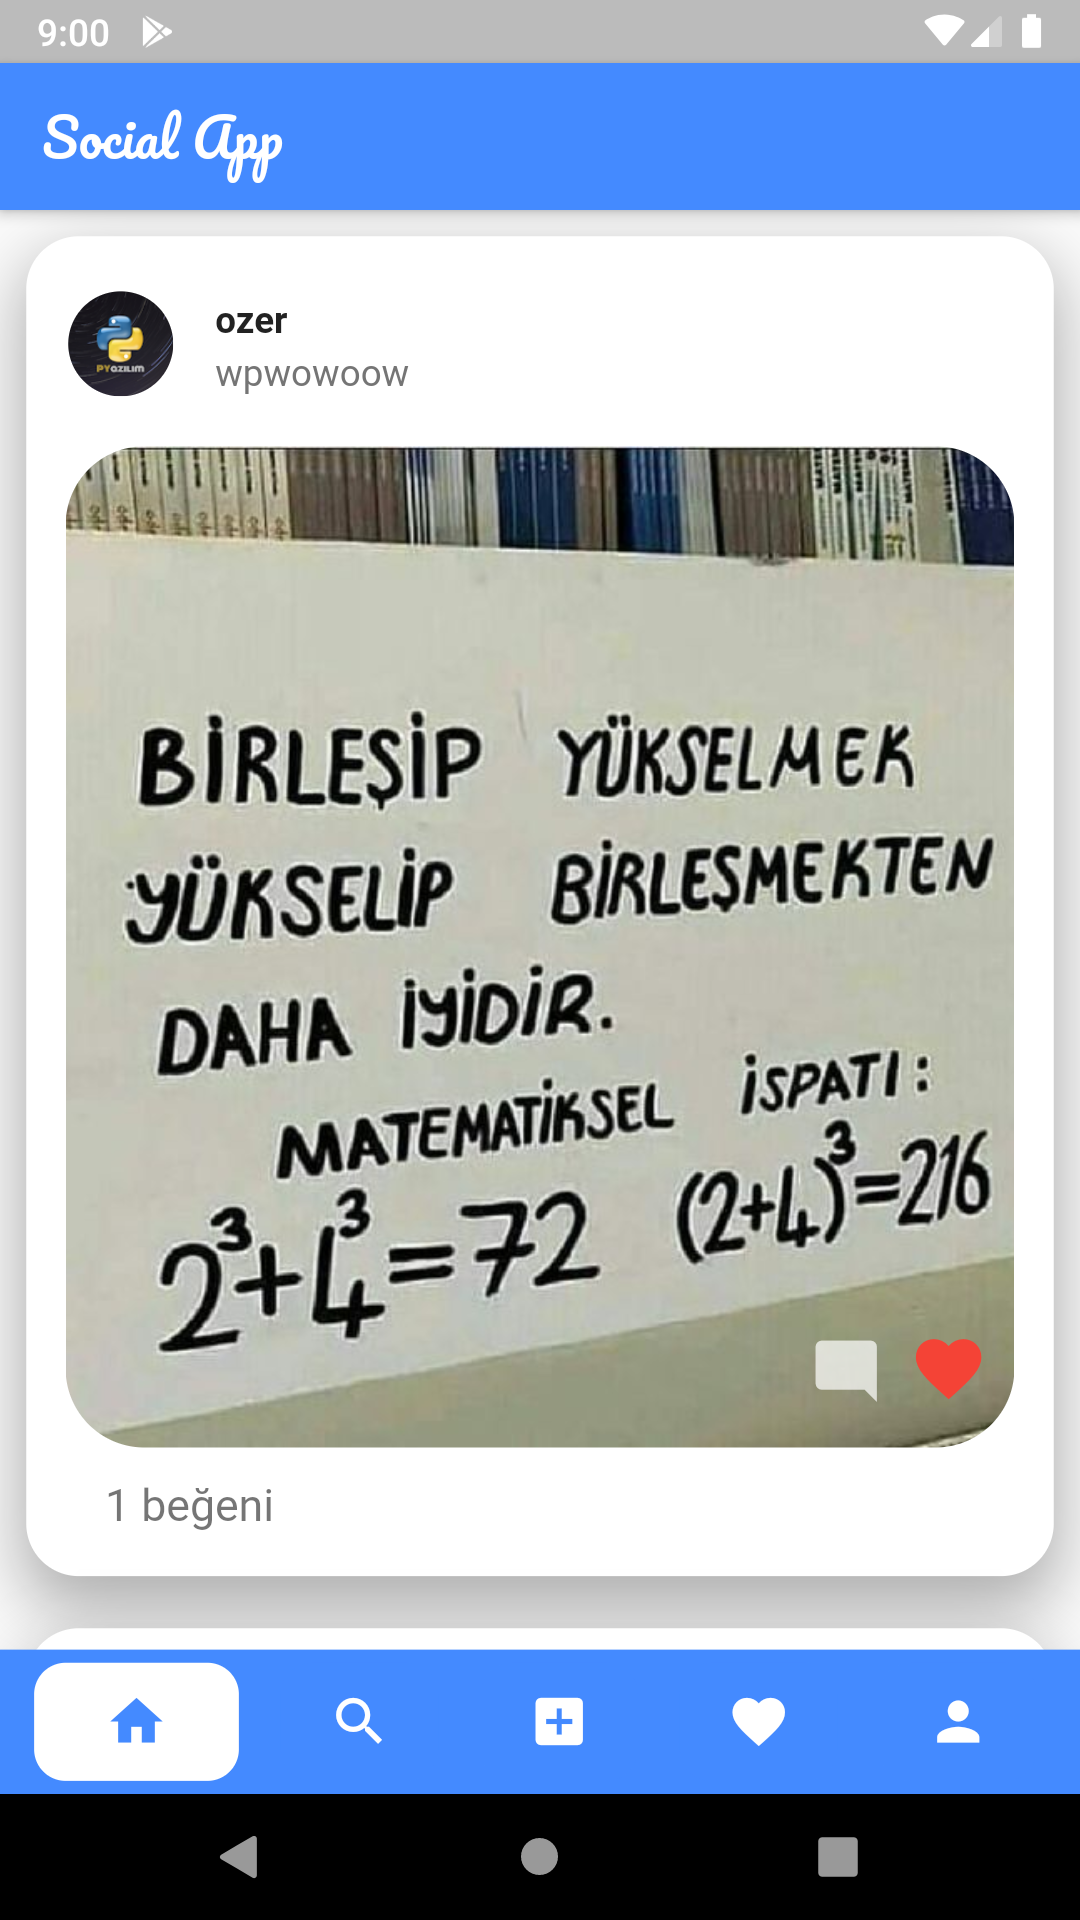 9:00
Social App
ozer
PYOZILIM
wpwowoow
BİRLEŞİP YÜKSELMEK
YÜKSELİP BİRLEŞMEKTEN
DAHA İYİDİR.
MATEMATİKSEL İSPATI:
2³+4³=72 (2+4)³=216
1 beğeni